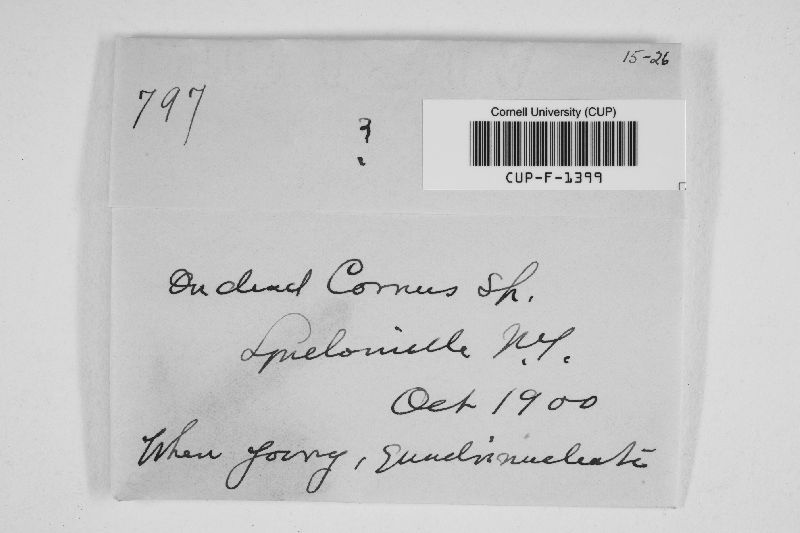 15-26
797
?
Cornell University (CUP)
CUP-F-1399
On dead Cornus Sp.
Lyndonville N.Y.
Oct 1900
When young, quadrinucleate